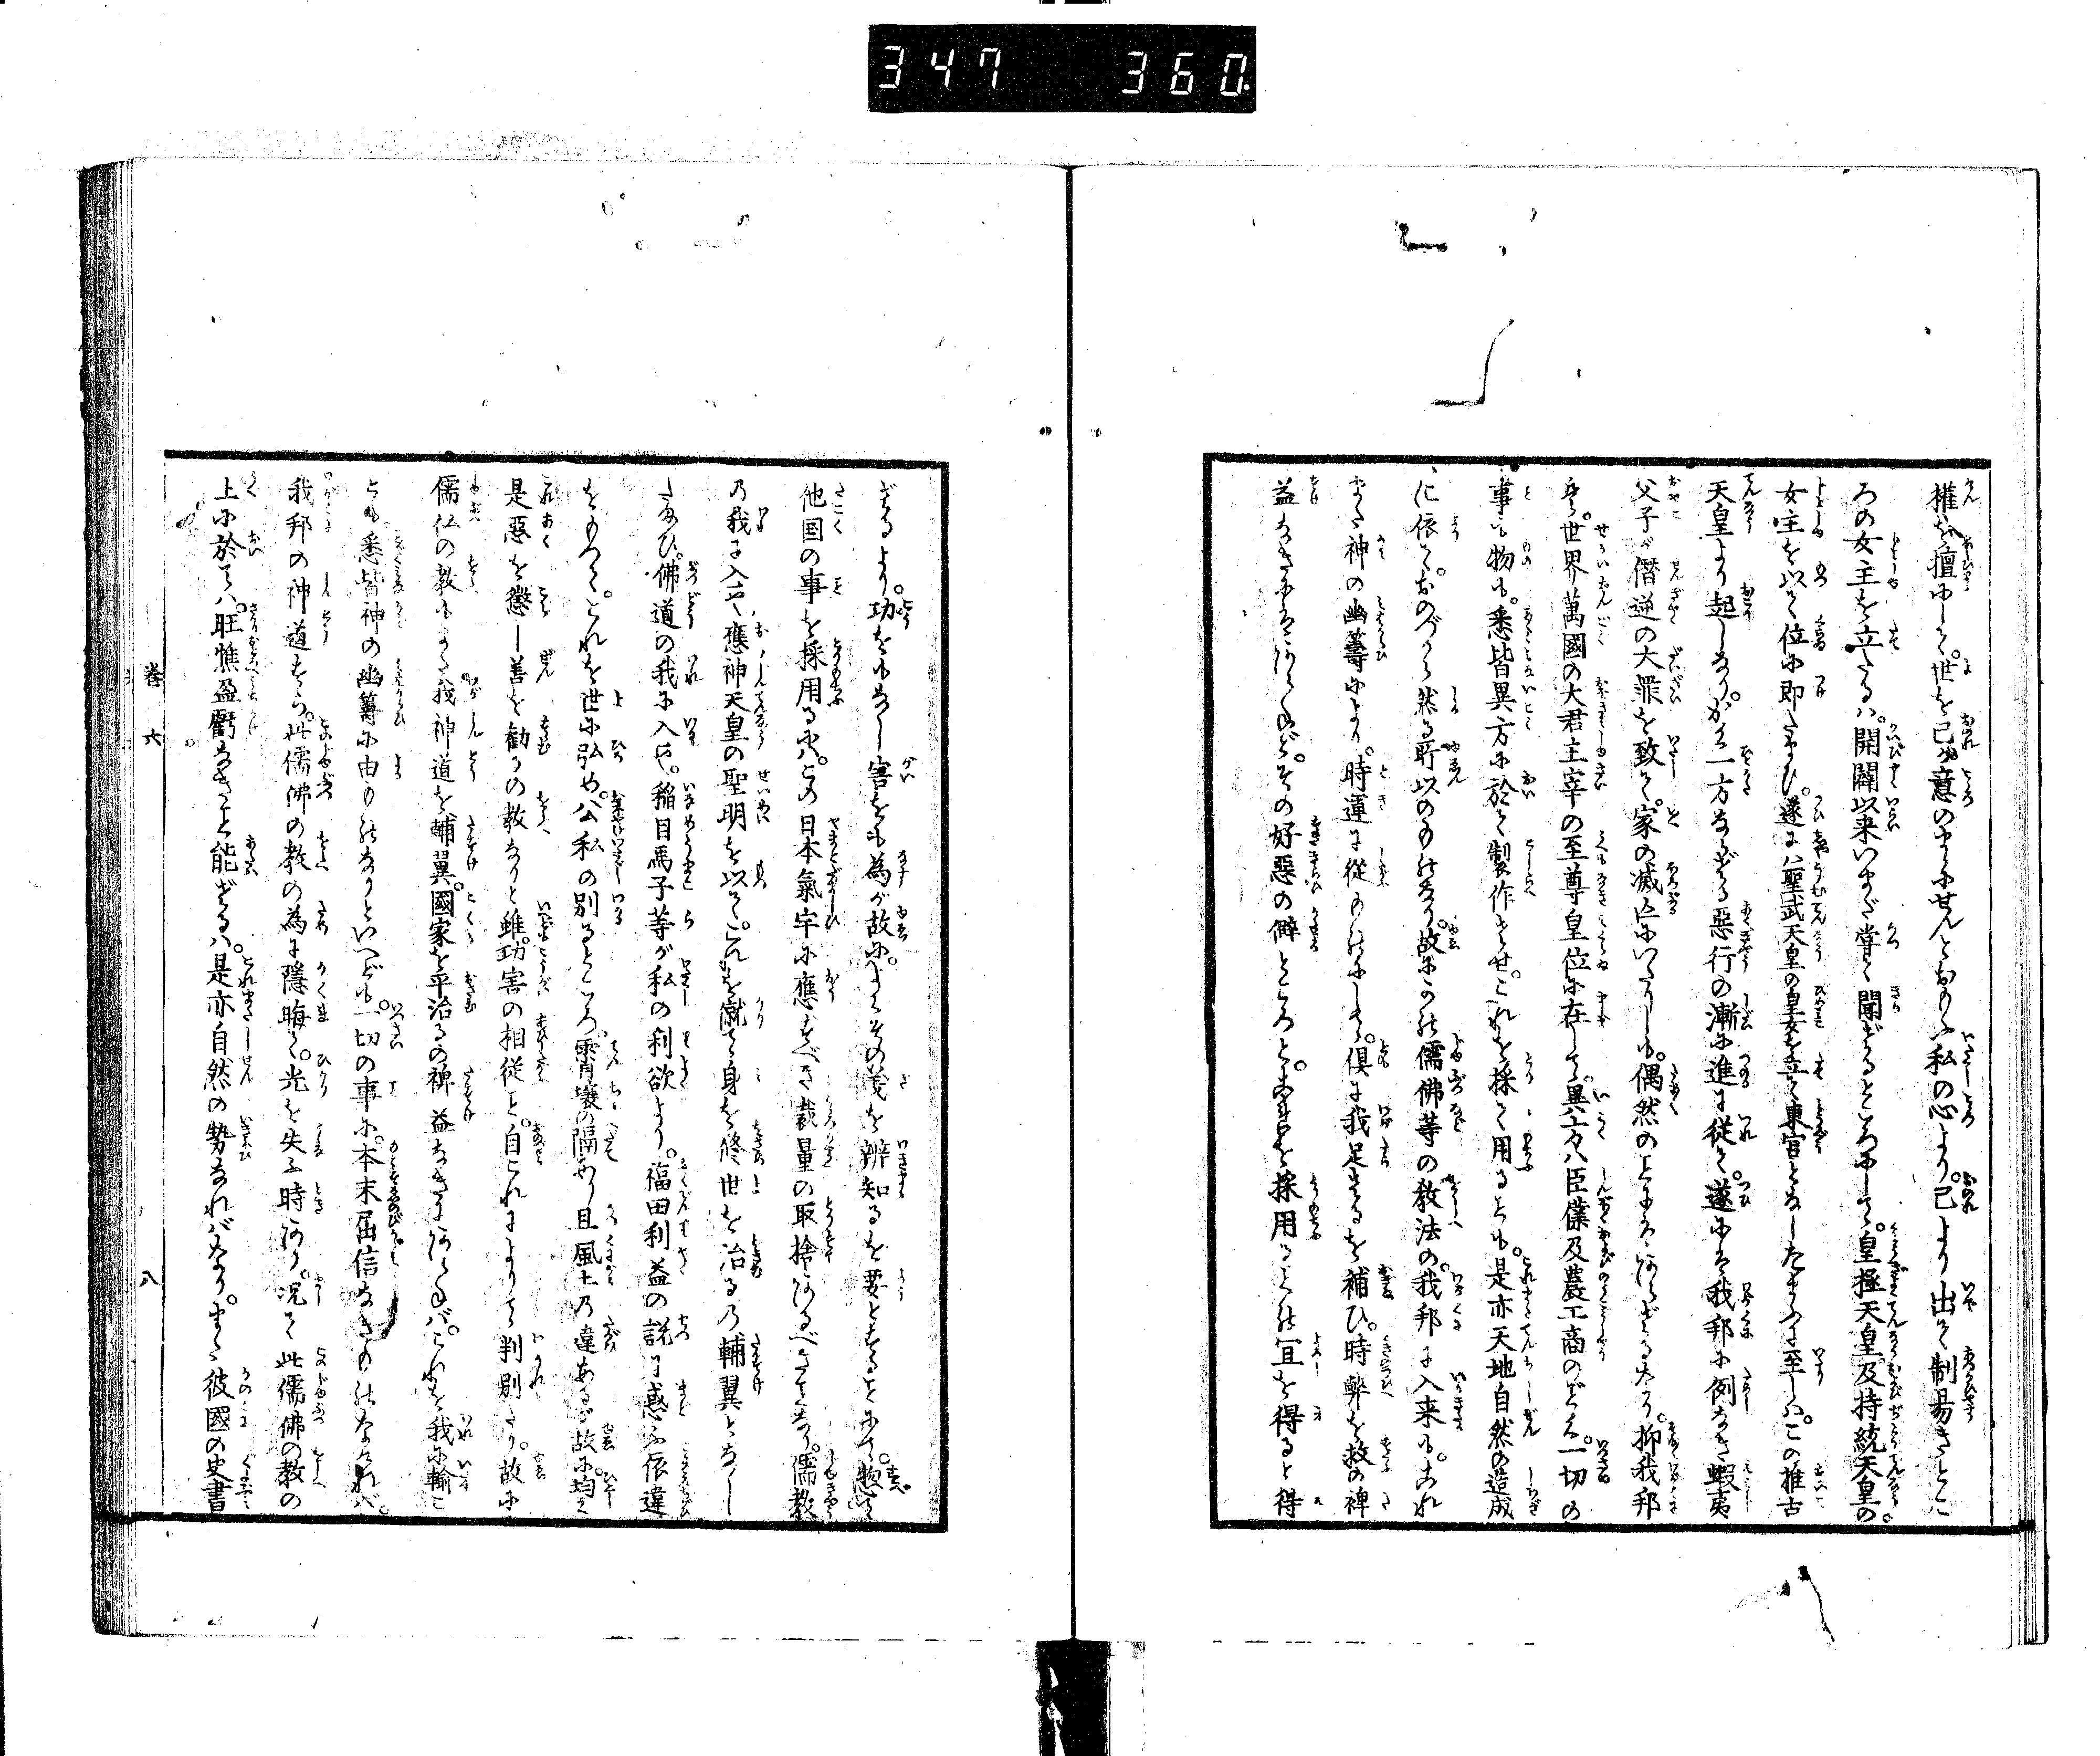 347 360
権を擅にして。世を己が意のまゝにせんとおもふ私の心より。己より出て制易きところ
ろの女主を立たるハ。開闢以来いまだ甞て聞ざるところにして。皇極天皇及持統天皇の。
女主を以て位に即たまひ。遂に聖武天皇の皇女を立て東宮となしたまふに至しハ。この推古
天皇より起しなり。かく一方ならざる惡行の漸に進に従て。遂にハ我邦に例なき蝦夷
父子が僭逆の大罪を致て。家の滅亡にいたりしも。偶然の上にハあらざるなり。抑我邦
ハ。世界萬國の大君主宰の至尊皇位に在して。異方ハ臣僕及農工商のごとく。一切の
事も物も。悉皆異方に於て製作させ。これを採て用ることも。是亦天地自然の造成
に依て。おのづから然る所以のものなり。故にこの儒佛等の教法の。我邦に入来も。これ
また神の幽籌により。時運に従ものにして。倶に我足ざるを補ひ。時弊を救の裨
益なきにハあらねど。その好惡の僻ところと。これを採用ることの宜を得ると得
ざるより。功をもなし害をも為が故に。よくその義を辨知るを要とすることにて。惣て
他国の事を採用るハ。この日本氣宇に應ずべき裁量の取捨あるべきことなり。儒教
乃我に入や。應神天皇の聖明を以て。これを試て身を修世を治るの輔翼となし
たまひ。佛道の我に入や。稲目馬子等が私の利欲より。福田利益の説に惑ふ依違
をもつて。これを世に弘め。公私の別るところ。霄壌の隔あり且風土乃違あるが故に。均く
是惡を懲し善を勧るの教なりと雖。功害の相従こと。自これによりて判別たり。故に
儒仏の教もまた我神道を輔翼。國家を平治るの裨益なきにあらねバ。これを我に輸こ
とも。悉皆神の幽籌に由ものなりといへども。一切の事に。本末屈信なきものなけれバ。
我邦の神道すら。此儒佛の教の為に隱晦て。光を失ふ時あり。况て此儒佛の教の
上に於てハ。旺憔盈虧なきこと能ざるハ。是亦自然の勢なれバなり。また彼國の史書
巻六
八